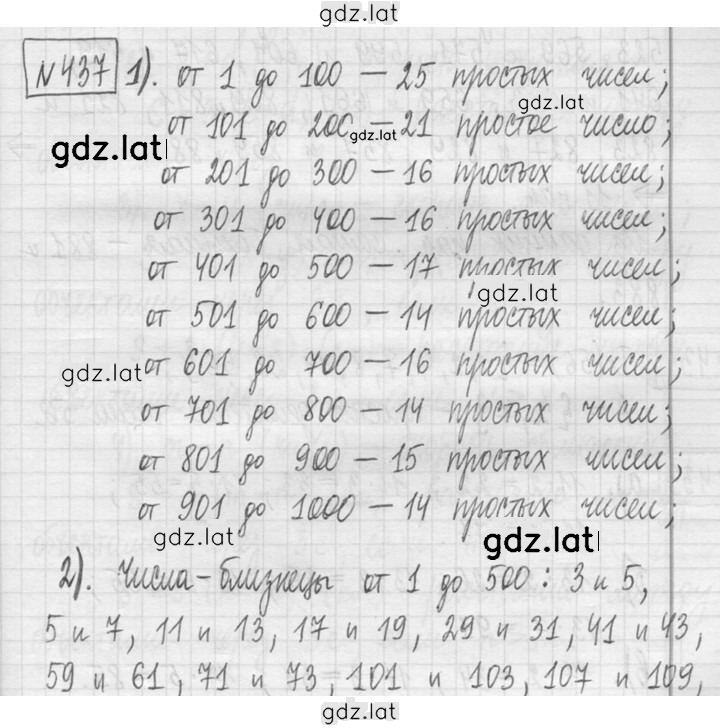 gdz.lat
№437 1). от 1 до 100 – 25 простых чисел;
gdz.lat
от 101 до 200 – 21 простое число;
gdz.lat
gdz.lat
от 201 до 300 – 16 простых чисел;
от 301 до 400 – 16 простых чисел;
от 401 до 500 – 17 простых чисел;
gdz.lat
от 501 до 600 – 14 простых чисел;
gdz.lat от 601 до 700 – 16 простых чисел;
от 701 до 800 – 14 простых чисел;
от 801 до 900 – 15 простых чисел;
от 901 до 1000 – 14 простых чисел;
gdz.lat gdz.lat
2). Числа-близнецы от 1 до 500: 3 и 5,
5 и 7, 11 и 13, 17 и 19, 29 и 31, 41 и 43,
59 и 61, 71 и 73, 101 и 103, 107 и 109,
gdz.lat